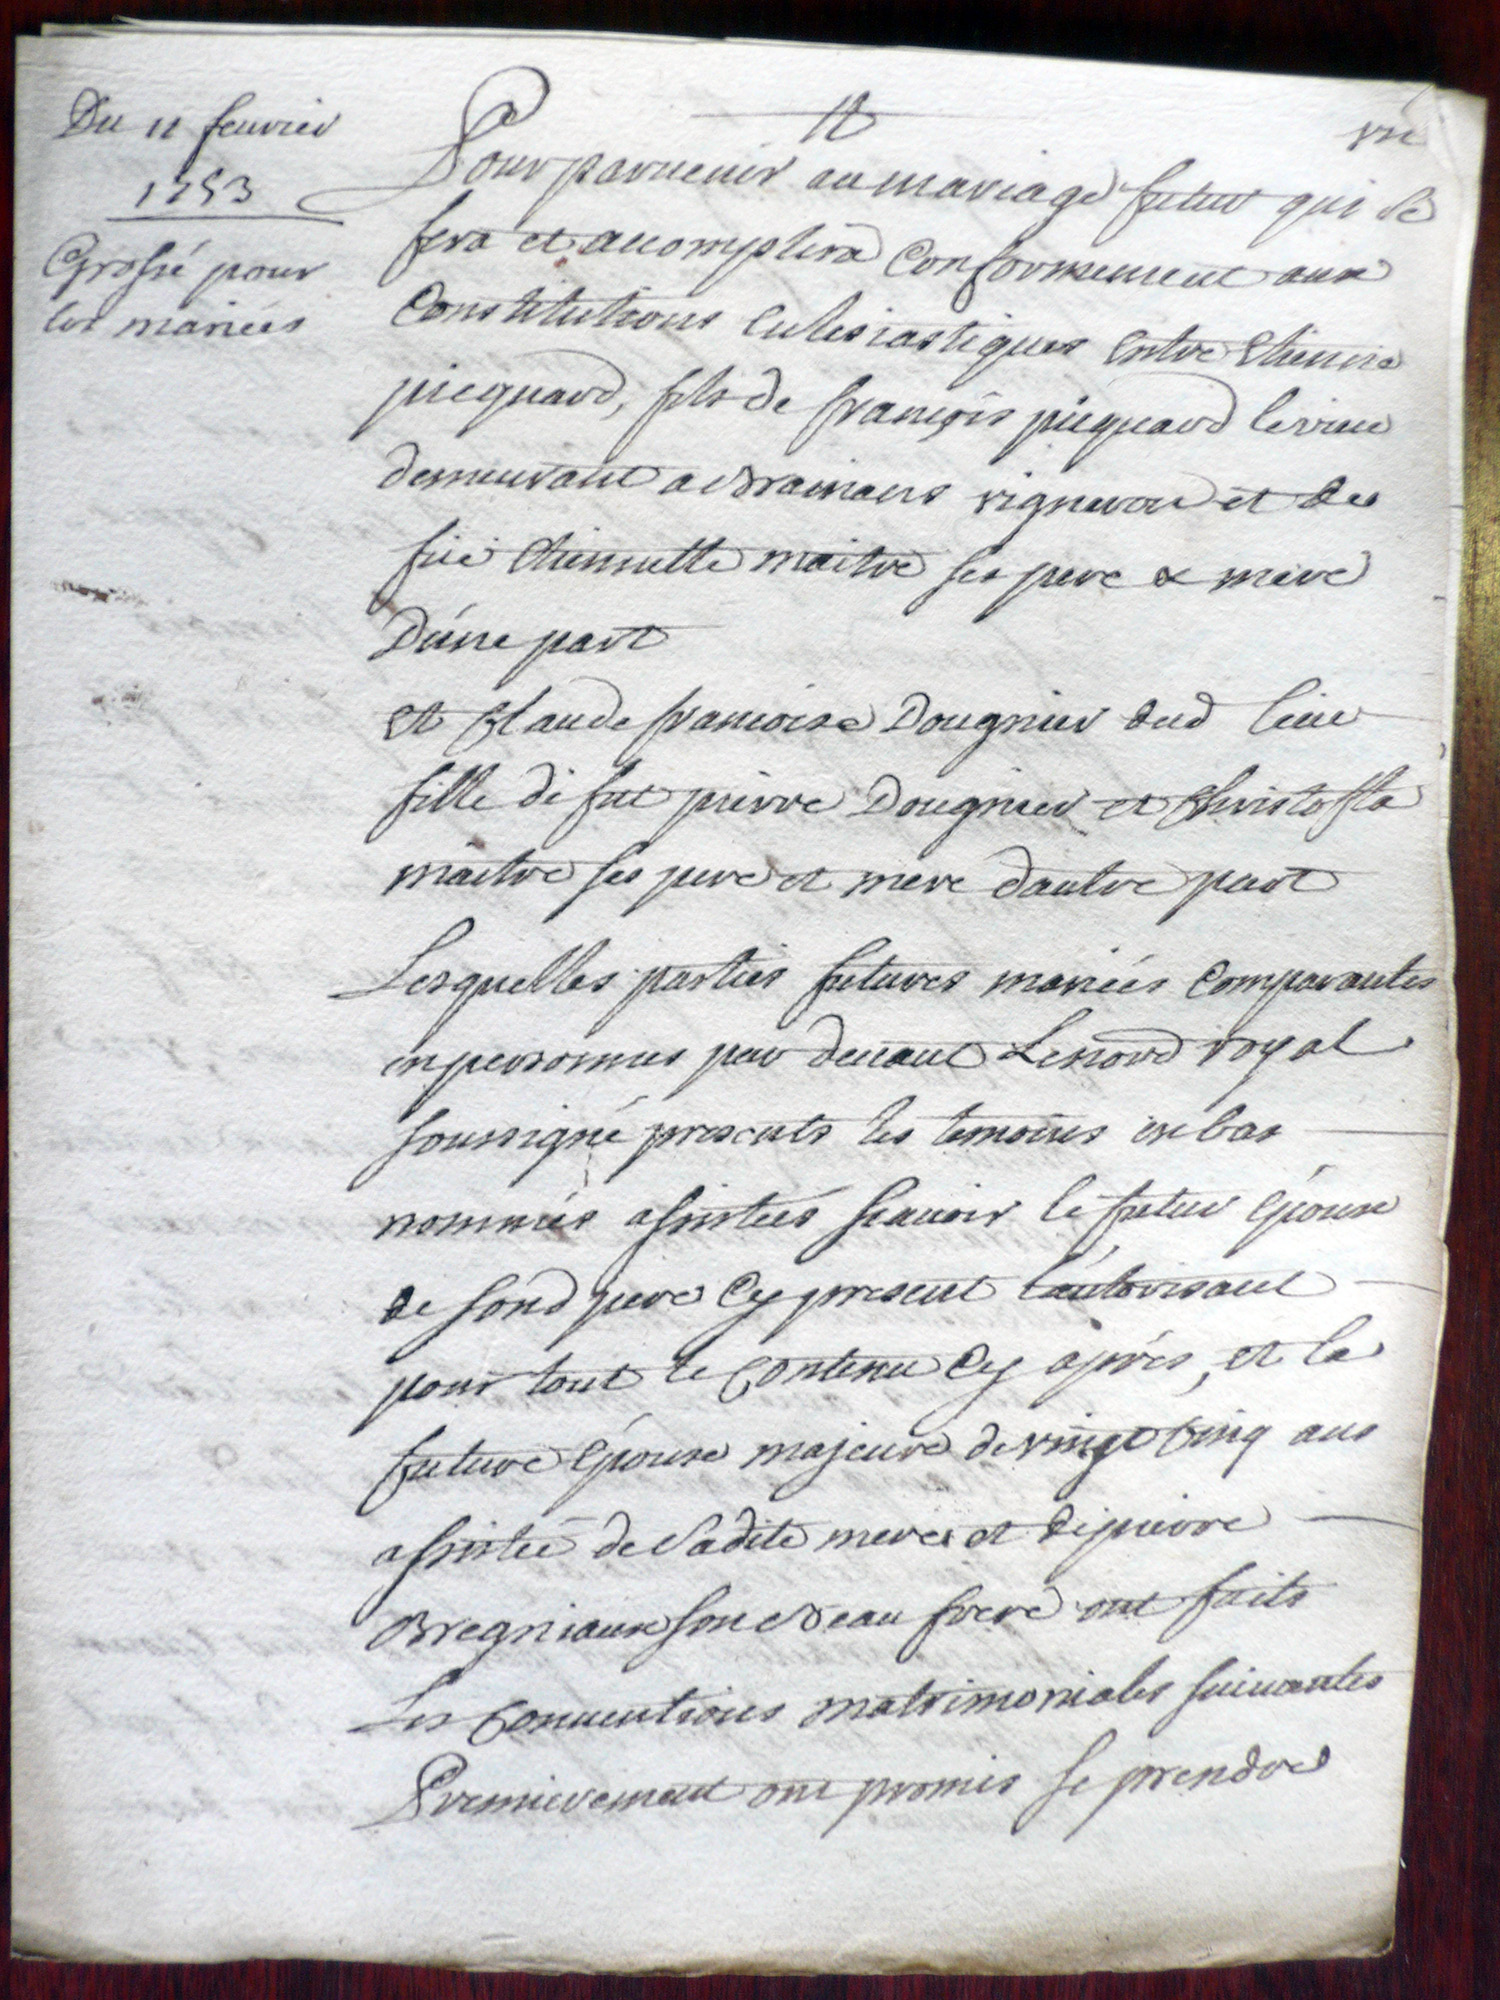 Du 11 feuvrier
1753
Grossé pour
les mariés
Pour parvenir au mariage futur qui se
fera et accomplira Conformement aux
Constitutions Eclesiastiques Entre Etienne
picquard, fils de françois picquard le vieu
demeurant a Brainans vigneron et de
fuë Etiennette maitre ses pere & mere
D'une part
et Claude francoise Dougnier dud lieu
fille de fut pierre Dougnier et Christofla
maitre ses pere et mere d'autre part
Lesquelles parties futures mariées Comparantes
en personnes par devant Le nore royal
soussigné presents les temoins en bas
nommés assistées scavoir le futur Epoux
de sond pere Cy present l'autorisant
pour tout le Contenu Cy aprés, et la
future Epouse majeure de vingt Cinq ans
assistée de Sadite mere et de pierre
Bregniaux son Beau frere ont faits
Les Conventions matrimoniales suivantes
Premierement ont promis se prendre